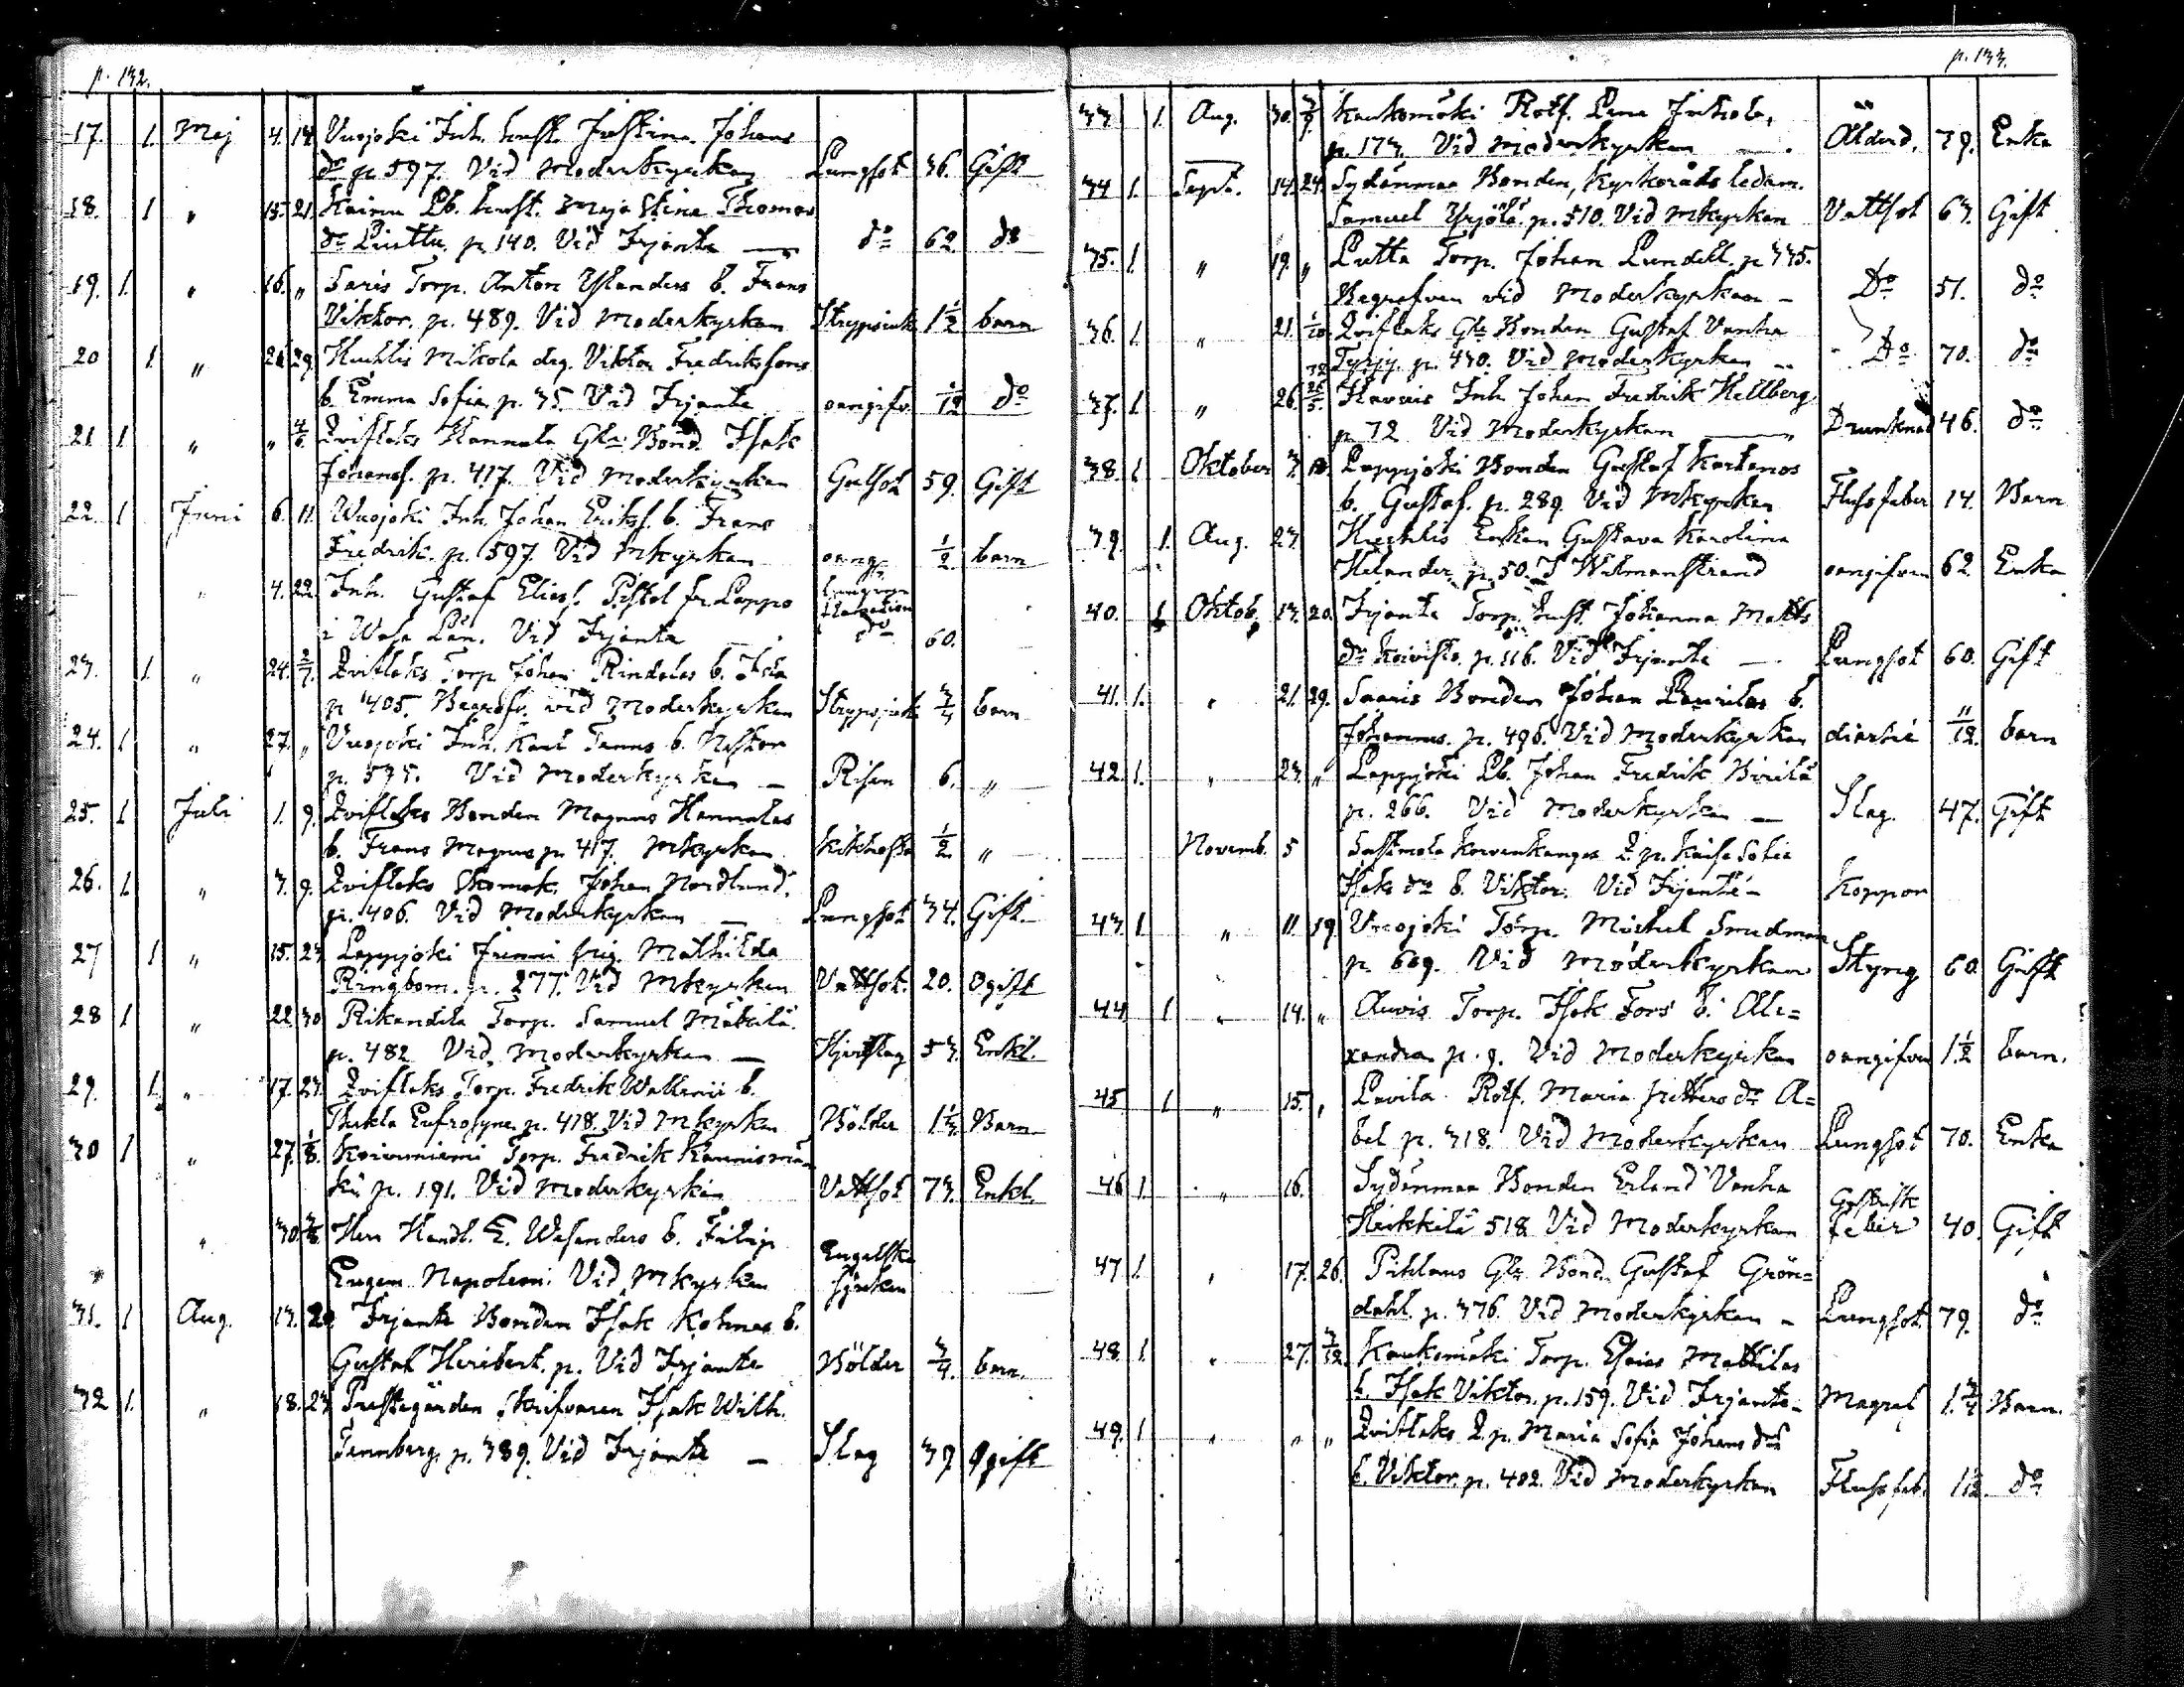 p. 132.
17. 1. Maj 4. 14. Vuojoki Inh. hust. Justina Johans
dr p. 597. Vid Moderkyrkan Lungsot 36. Gift
18. 1 " 15. 21. Kainu Lb. hust. Maja Stina Thomas
dr Luottu. p. 140. Vid Irjanta — do 62 do
19. 1. " 16. " Saris Torp. Anton Ylanders b. Frans
Viktor. p. 489. Vid Moderkyrkan Strypsjuk 1½ barn
20 1. " 21 29. Huhtis Mikola drg. Viktor Fredrikssons
b. Emma Sofia p. 35. Vid Irjanta oangifv. 1/12 do
21 1 " " 4/6 Qviflaks Hannula Gla Bond. Isak
Johanss. p. 417. Vid Moderkyrkan Gulsot 59. Gift
22 1 Juni 6. 11. Wuojoki Inh. Johan Erikss. b. Frans
Fredrik. p. 597. Vid Mkyrkan oang. ½ barn
" 4. 22 Inh. Gustaf Eliess. Pistol fr. Lappo
i Wasa Län. Vid Irjanta — do 60.
23. 1. " 24. 2/7. Qviflaks Torp Johan Rindelas b. Ida
p 405. Begrafv. vid Moderkyrkan Strypsjuk ¾ barn
24. 1. " 27. " Vuojoki Inh. Karl Tamms b. Nestor
p. 595. Vid Moderkyrkan — Risen 6. "
25. 1 Juli 1. 9. Qviflaks Bonden Magnus Hannulas
b. Frans Magnus p. 417. Mkyrkan Kikhosta ½ "
26. 1. " 3. 9. Qviflaks Skomak. Johan Nordlund.
p. 406. Vid Moderkyrkan — Lungsot 34. Gift
27 1 " 15. 23 Lappjoki Junnu pig. Mathilda
Ringbom. p. 277. Vid Mkyrkan Vattsot. 20. Ogift
28 1 " 22 30 Rikandila Torp. Samuel Mäkilä.
p. 482 Vid Moderkyrkan — Hjertslag 53. Enkl.
29. 1. " 17. 23. Qviflaks Torp. Fredrik Wallenii b.
Thekla Eufrosyne p. 418. Vid Mkyrkan Bölder 1⅓ Barn
30 1 " 27. 1/8. Koivuniemi Torp. Fredrik Kaunismä-
ki p. 191. Vid Moderkyrkan Vattsot 73. Enkl.
" 30. Herr Handl. E. Wesanders b. Filip
Eugen Napoleon. Vid Mkyrkan Engelska sjukan
31. 1 Aug. 13. 20 Irjanta Bonden Isak Kohnas b.
Gustaf Heribert. p. Vid Irjanta Bölder ¾. barn.
32 1. " 18. 23 Prestegården Skrifvaren Isak Wilh.
Tennberg. p. 389. Vid Irjanta — Slag 37 Ogift
p. 133.
33 1. Aug. 30. Kaukomäki Rotf. Lena Jukola,
p. 173. Vid Moderkyrkan — Ålderd. 79. Enka
34 1. Sept. 14. 24. Sydänmaa Bonden, Kyrkoråds ledam.
Samuel Yrjölä. p. 510. Vid Mkyrkan Vattsot 63. Gift
35. 1. " 19. " Lutta Torp. Johan Lundell. p 335.
Begrafven vid Moderkyrkan — Do 51. do
36. 1. " 21. 1/10 Qviflaks Gla Bonden Gustaf Vanha
Tyrjy. p. 430. Vid Moderkyrkan Do 70. do
37. 1. " 26. Hevuis Inh Johan Fredrik Hellberg
p. 72 Vid Moderkyrkan — Drunknad 46. do
38. 1 Oktober 3. 10. Lappjoki Bonden Gustaf Kartanos
b. Gustaf. p. 289. Vid Mkyrkan Flussfeber 14. Barn
39. 1. Aug. 23. Huhtis Enkan Gustava Karolina
Helander p. 50. I Wilmanstrand oangifven 62. Enka
40. 1 Oktob. 13. 20. Irjanta Torp. hust. Johanna Matts
dr Koivisto. p. 116. Vid Irjanta — Lungsot 60. Gift
41. 1. " 21. 29. Saaris Bonden Johan Laurilas b.
Johannes. p. 496. Vid Moderkyrkan diarhé 11/12. barn
42. 1. " 23. " Lappjoki Lb. Johan Fredrik Virilä
p. 266. Vid Moderkyrkan — Slag. 47. Gift
Novemb. 5 Sastmola Korvenkangas Q. p. Kaisa Sofia
Isaks dr b. Viktor. Vid Irjanta — Koppor
43. 1. " 11. 19. Vuojoki Torp. Michel Smedman
p. 609. Vid Moderkyrkan Styng 60. Gift
44. 1 " 14. " Auvis Torp. Isak Fors b. Ale=
xandra p. 9. Vid Moderkyrkan oangifven 1½ barn.
45 1 " 15. " Lavila Rotf. Maria Petters dr A=
bel p. 318. Vid Moderkyrkan Lungsot 70. Enka
46 1. " 16. Sydänmaa Bonden Erland Vanha
Heikkilä 518 Vid Moderkyrkan Gastrisk feber 40. Gift
47 1. " 17. 26. Pihlaus Gla Bond. Gustaf Grön=
dahl. p. 376. Vid Moderkyrkan — Lungsot 79. do
48. 1. " 27. 3/12. Kaukomäki Torp. Esaias Mattilas
b. Isak Viktor. p. 159. Vid Irjanta — Magref 1¾ Barn.
49. 1. " " " Qviflaks Q. p. Maria Sofia Johans drs
b. Viktor. p. 402. Vid Moderkyrkan Flussfeb. do